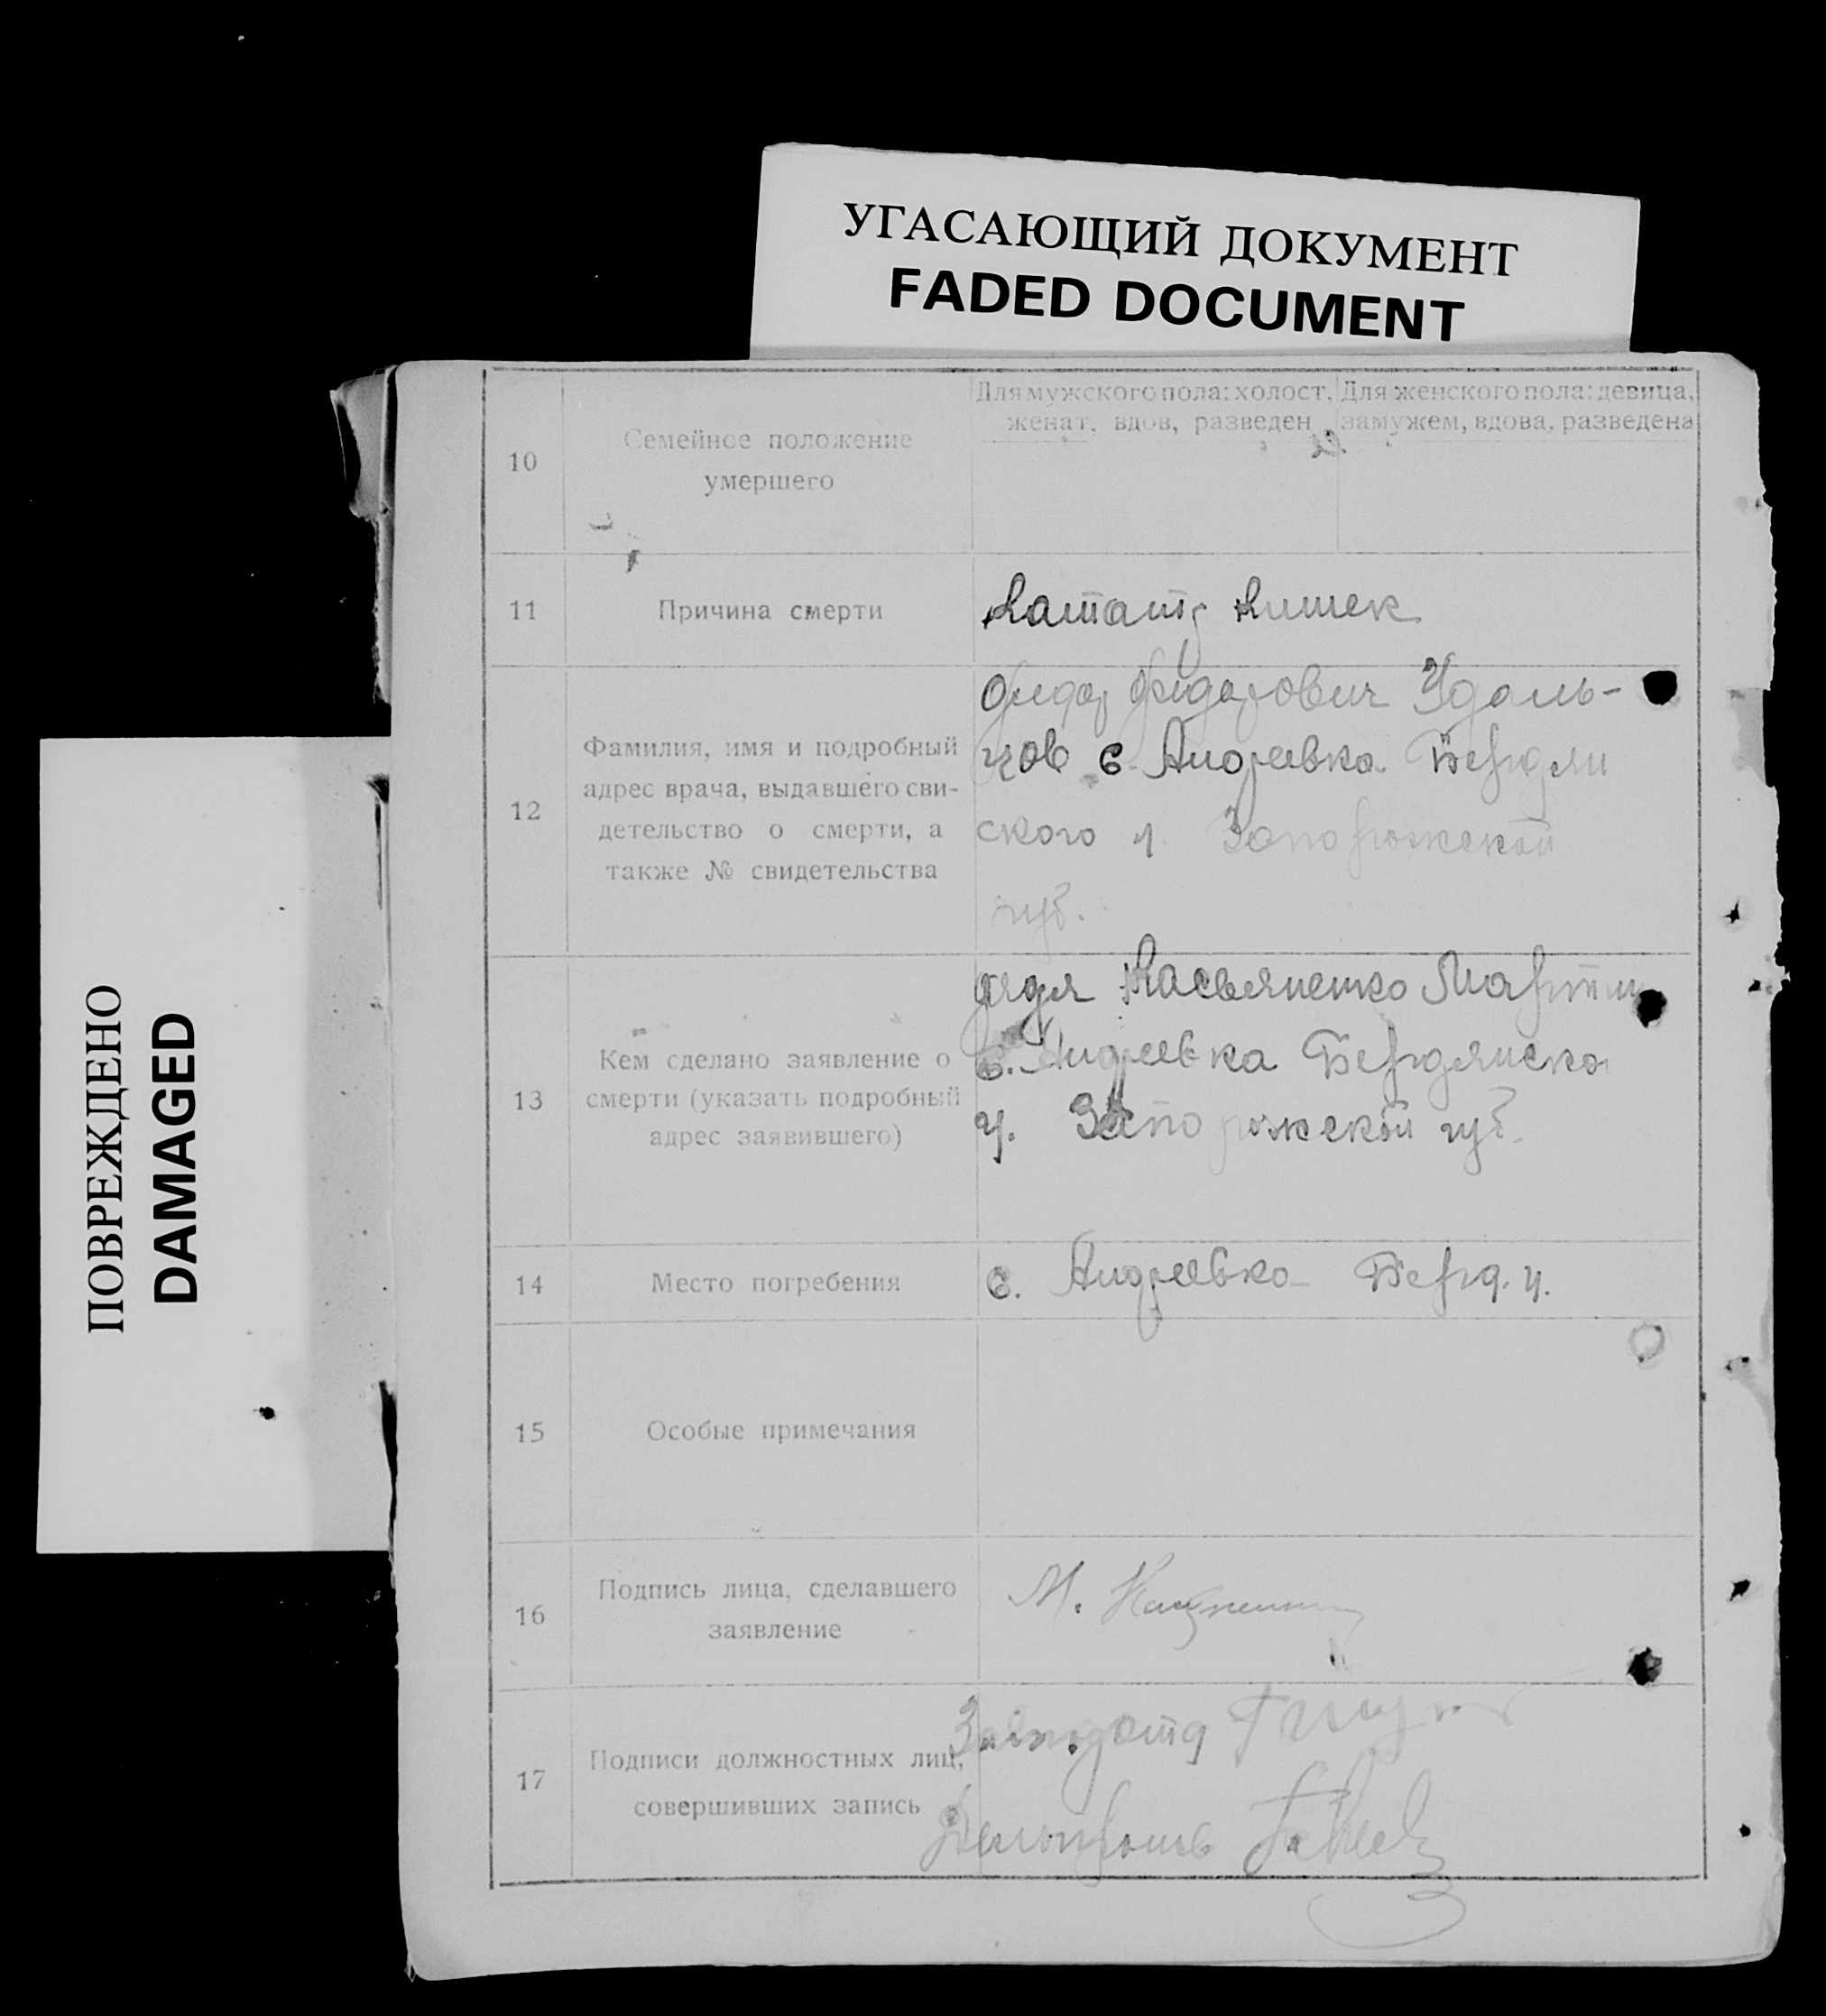 УГАСАЮЩИЙ ДОКУМЕНТ
FADED DOCUMENT
ПОВРЕЖДЕНО
DAMAGED
10
Семейное положение
умершего
Для мужского пола: холост,
женат, вдов, разведен
Для женского пола: девица,
замужем, вдова, разведена
11
Причина смерти
Кататр Кишек
12
Фамилия, имя и подробный
адрес врача, выдавшего сви-
детельство о смерти, а
также № свидетельства
Фидор Фидорович Удоль-
цов с. Андреевка Бердян
ского у. Запорожской
губ.
13
Кем сделано заявление о
смерти (указать подробный
адрес заявившего)
дядя Касьяненко Мартин
с. Андреевка Бердянско
у. Запорожской губ.
14
Место погребения
с. Андреевка Берд. у.
15
Особые примечания
16
Подпись лица, сделавшего
заявление
М.
17
Подписи должностных лиц,
совершивших запись
Делопроив